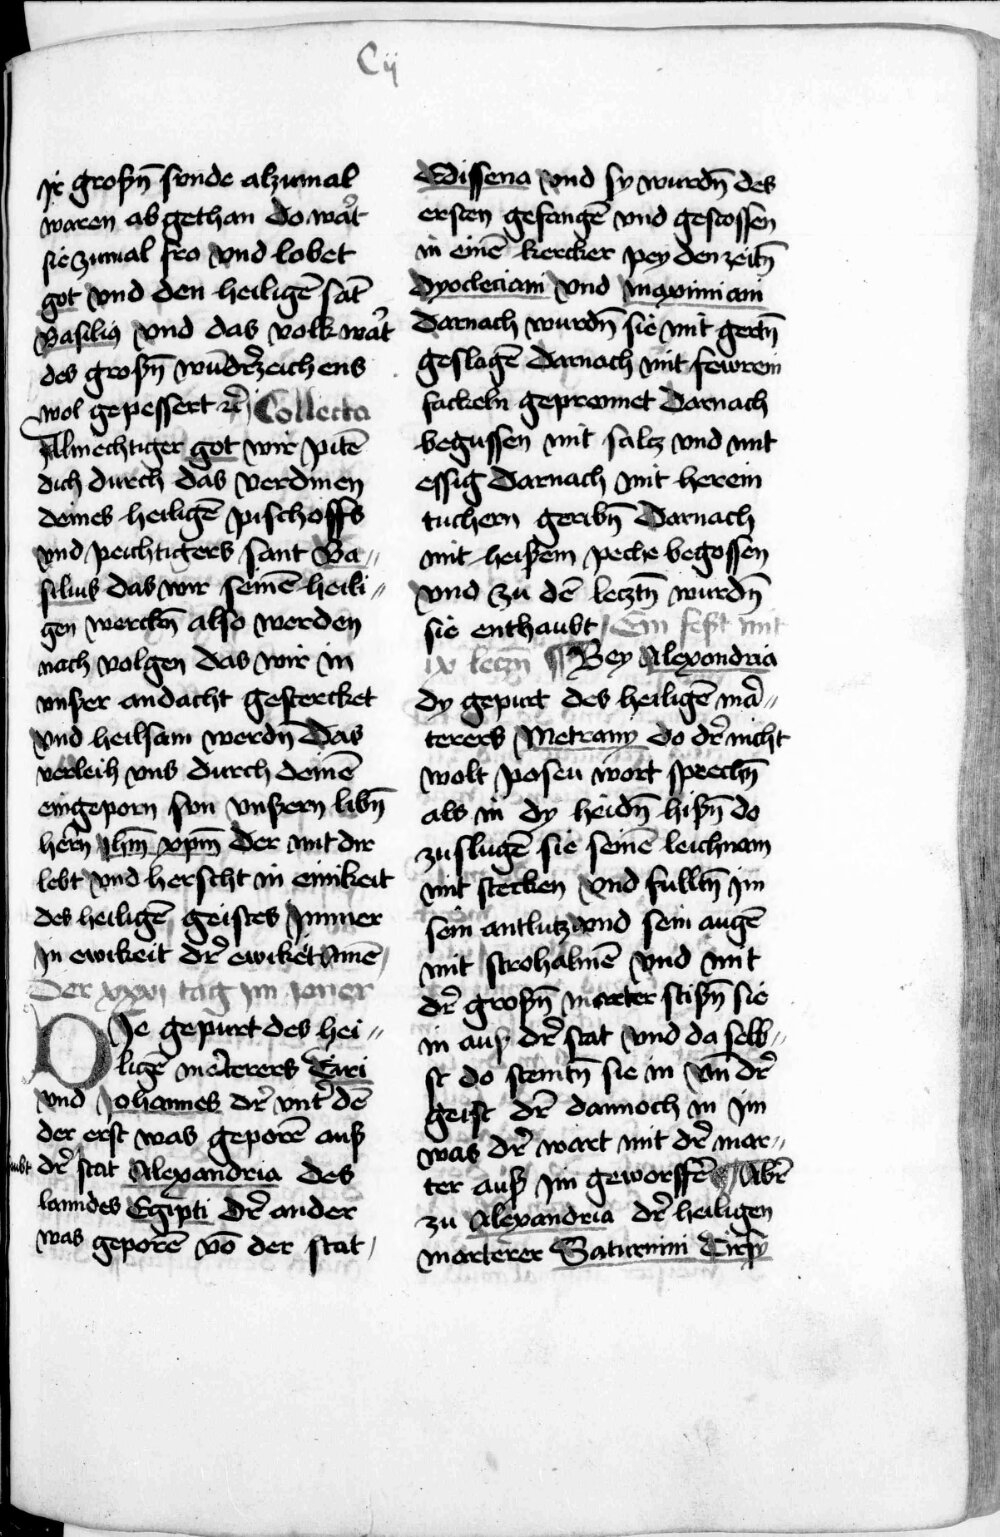 Cij
Jr großn̄ sunde alzumal
waren ab gethan do wa᷑t
sie zumal fro vnd lobet
got vnd den heiligē sāt
Basiliꝰ vnd das volk wa᷑t
des großn̄ wūdr̄zeichens
wol gepessert ꝛc̄ Collecta
Almechtiger got wir pitē
dich durch das verdinen
deines heiligē pischoffs
vnd peichtigers sant Ba〃
silius das wir seinē heili〃
gen werckn̄ also werden
nach volgen das wir in
vnßer andacht gestercket
vnd heilsam werdn̄ Das
verleih vns durch deinē
eingeporn sun vnßern libn̄
hern̄ jhm̄ xpm̄ der mit dir
lebt vnd herscht in einikeit
des heiligē geistes Jmmer
Jn ewikeit dr̄ ewiket Amē
Der xxxi tag im Jener
DJe gepurt des hei〃
ligē mēterers Ciri
vnd Johannes dr̄ vnt᷑ dē
der erst was geporē auß
dr̄ stat Alexandria des
lanndes Egipti dr̄ ander
was geporē vō der stat
Edissena vnd sy wurdn̄ des
ersten gefangē vnd gestossen
in einē kercker pey den zeitn̄
Dyocleciani vnd maximiani
Darnach wurdn̄ sie mit gertn̄
geslagē Darnach mit fewrein
fackeln geprennet Darnach
begussen mit saltz vnd mit
essig Darnach mit herein
tuchern geribn̄ Darnach
mit heißem peche begossen
vnd zu dē letztn̄ wurdn̄
sie enthaubt Ein fest mit
ix letzn̄ ¶ Bey Alexandria
dy gepurt des heiligē mā〃
terers Metrany do dr̄ nicht
wolt poseu wort sprechn̄
als in dy heidn̄ hißn̄ do
zuslugē sie seinē leichnam
mit stecken vnd fulltn̄ jm
sein antlutz vnd sein augē
mit strohalmē vnd mit
dr̄ großn̄ marter stißn̄ sie
in auß dr̄ stat vnd da selb〃
st do steintn̄ sie in vn̄ dr̄
geist dr̄ dannoch in jm
was dr̄ wart mit dr̄ mar〃
ter auß jm geworffē ¶ Abr̄
zu Alexandria dr̄ heiligen
marterer Saturnini Tirsy